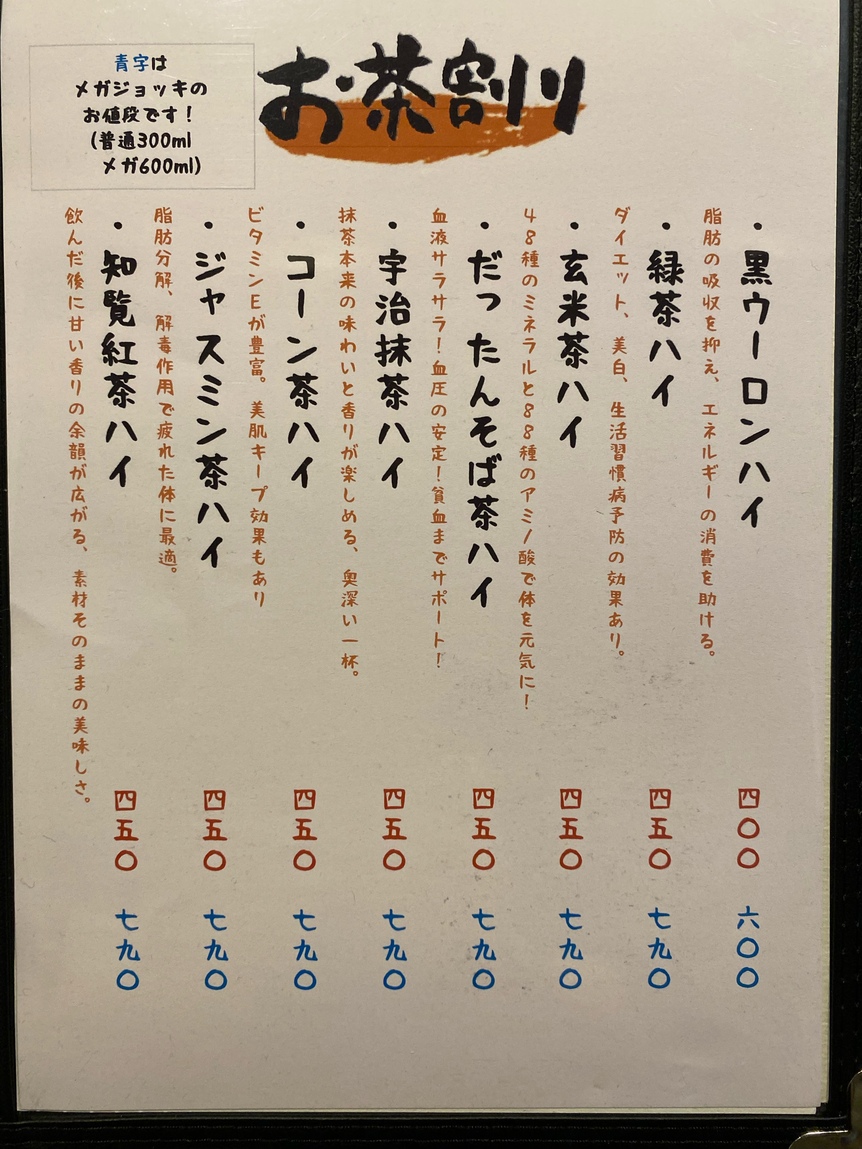 お茶割り
青字は
メガジョッキの
お値段です！
(普通300ml
メガ600ml)
・黒ウーロンハイ
四〇〇
六〇〇
脂肪の吸収を抑え、エネルギーの消費を助ける。
・緑茶ハイ
四五〇
七九〇
ダイエット、美白、生活習慣病予防の効果あり。
・玄米茶ハイ
四五〇
七九〇
48種のミネラルと88種のアミノ酸で体を元気に！
・だったんそば茶ハイ
四五〇
七九〇
血液サラサラ！血圧の安定！貧血までサポート！
・宇治抹茶ハイ
四五〇
七九〇
抹茶本来の味わいと香りが楽しめる、奥深い一杯。
・コーン茶ハイ
四五〇
七九〇
ビタミンEが豊富。美肌キープ効果もあり
・ジャスミン茶ハイ
四五〇
七九〇
脂肪分解、解毒作用で疲れた体に最適。
・知覧紅茶ハイ
四五〇
七九〇
飲んだ後に甘い香りの余韻が広がる、素材そのままの美味しさ。